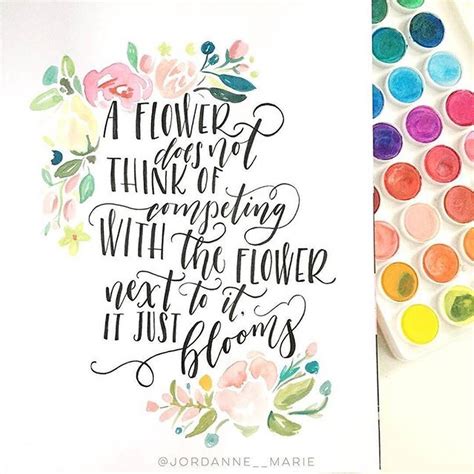 A FLOWER
does not
THINK OF
competing
WITH the FLOWER
next to it,
IT JUST
blooms
@JORDANNE__MARIE